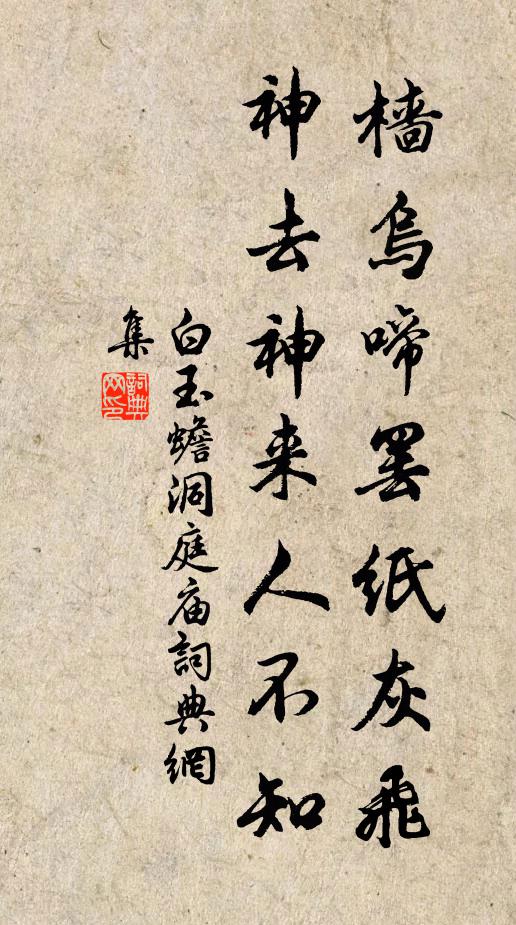 檣烏啼罢紙灰飛
神去神来人不知
白玉蟾洞庭庙詞典網
集
詞典
网印